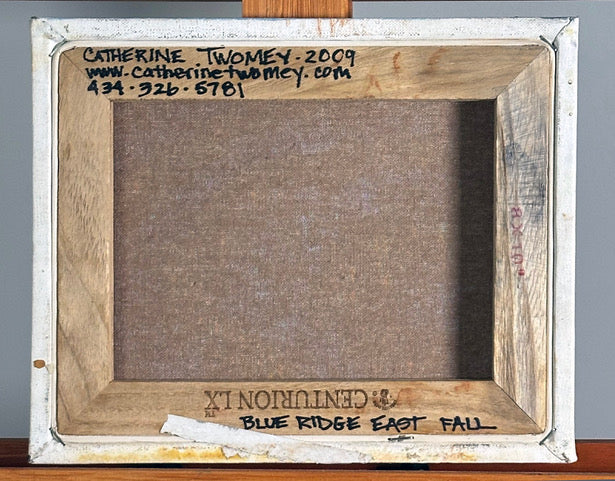 CATHERINE TWOMEY · 2009
www.catherinetwomey.com
434·326·5781
8X10"
CENTURION LX™
BLUE RIDGE EAST FALL